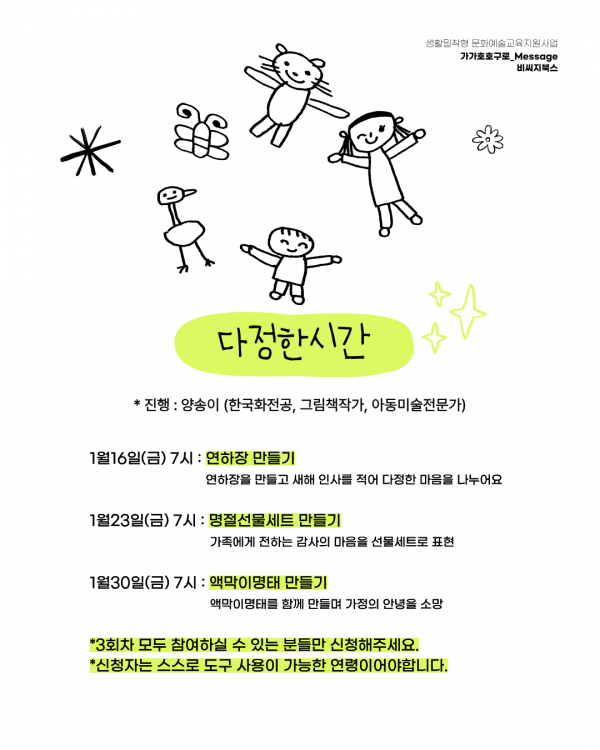 생활밀착형 문화예술교육지원사업
가가호호구로_Message
비씨지북스
다정한시간
* 진행 : 양송이 (한국화전공, 그림책작가, 아동미술전문가)
1월16일(금) 7시 : 연하장 만들기
연하장을 만들고 새해 인사를 적어 다정한 마음을 나누어요
1월23일(금) 7시 : 명절선물세트 만들기
가족에게 전하는 감사의 마음을 선물세트로 표현
1월30일(금) 7시 : 액막이명태 만들기
액막이명태를 함께 만들며 가정의 안녕을 소망
*3회차 모두 참여하실 수 있는 분들만 신청해주세요.
*신청자는 스스로 도구 사용이 가능한 연령이어야합니다.